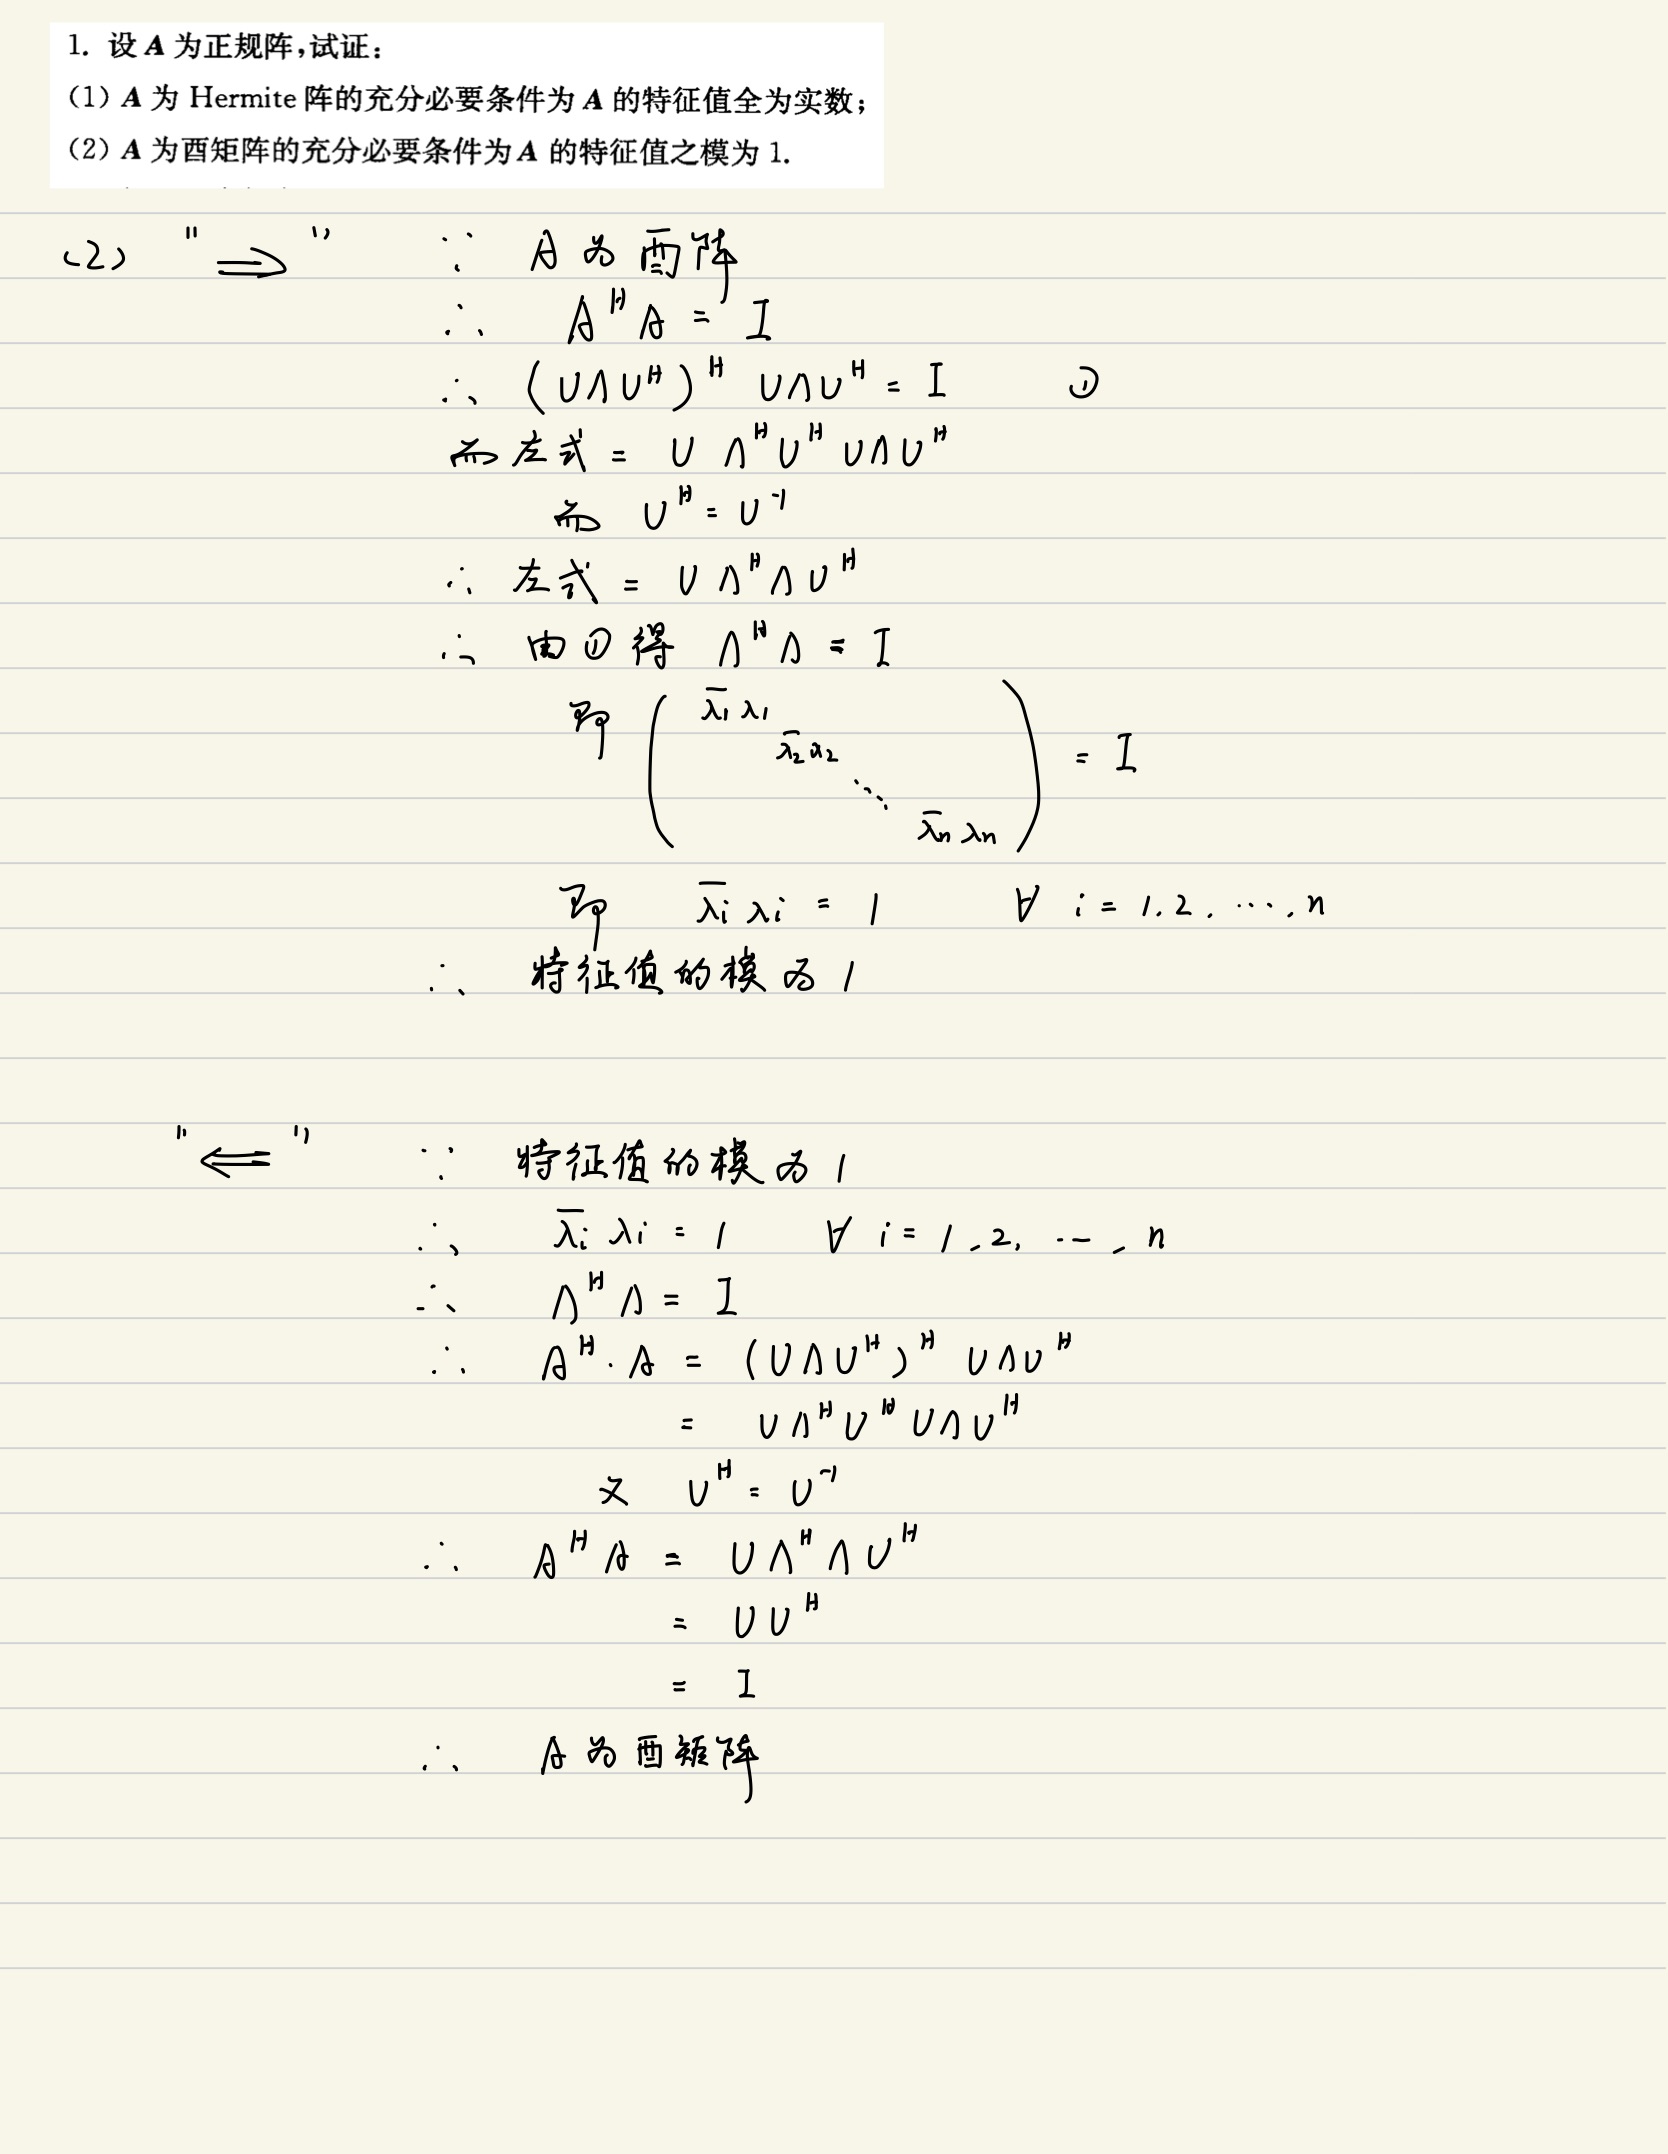 1. 设 A 为正规阵,试证:
(1) A 为 Hermite 阵的充分必要条件为 A 的特征值全为实数;
(2) A 为酉矩阵的充分必要条件为 A 的特征值之模为 1.
(2) "⟹" ∵ A 为酉阵
∴ AᴴA = I
∴ (UΛUᴴ)ᴴ UΛUᴴ = I ①
而左式 = U ΛᴴUᴴ UΛUᴴ
而 Uᴴ = U⁻¹
∴ 左式 = U ΛᴴΛUᴴ
∴ 由①得 ΛᴴΛ = I
即 ( λ̄₁λ₁
λ̄₂λ₂
⋱ ) = I
λ̄ₙλₙ
即 λ̄ᵢλᵢ = 1 ∀ i = 1.2. ⋯, n
∴ 特征值的模为 1
"⟸" ∵ 特征值的模为 1
∴ λ̄ᵢλᵢ = 1 ∀ i = 1,2, ⋯, n
∴ ΛᴴΛ = I
∴ Aᴴ·A = (UΛUᴴ)ᴴ UΛUᴴ
= UΛᴴUᴴUΛUᴴ
又 Uᴴ = U⁻¹
∴ AᴴA = UΛᴴΛUᴴ
= UUᴴ
= I
∴ A 为酉矩阵